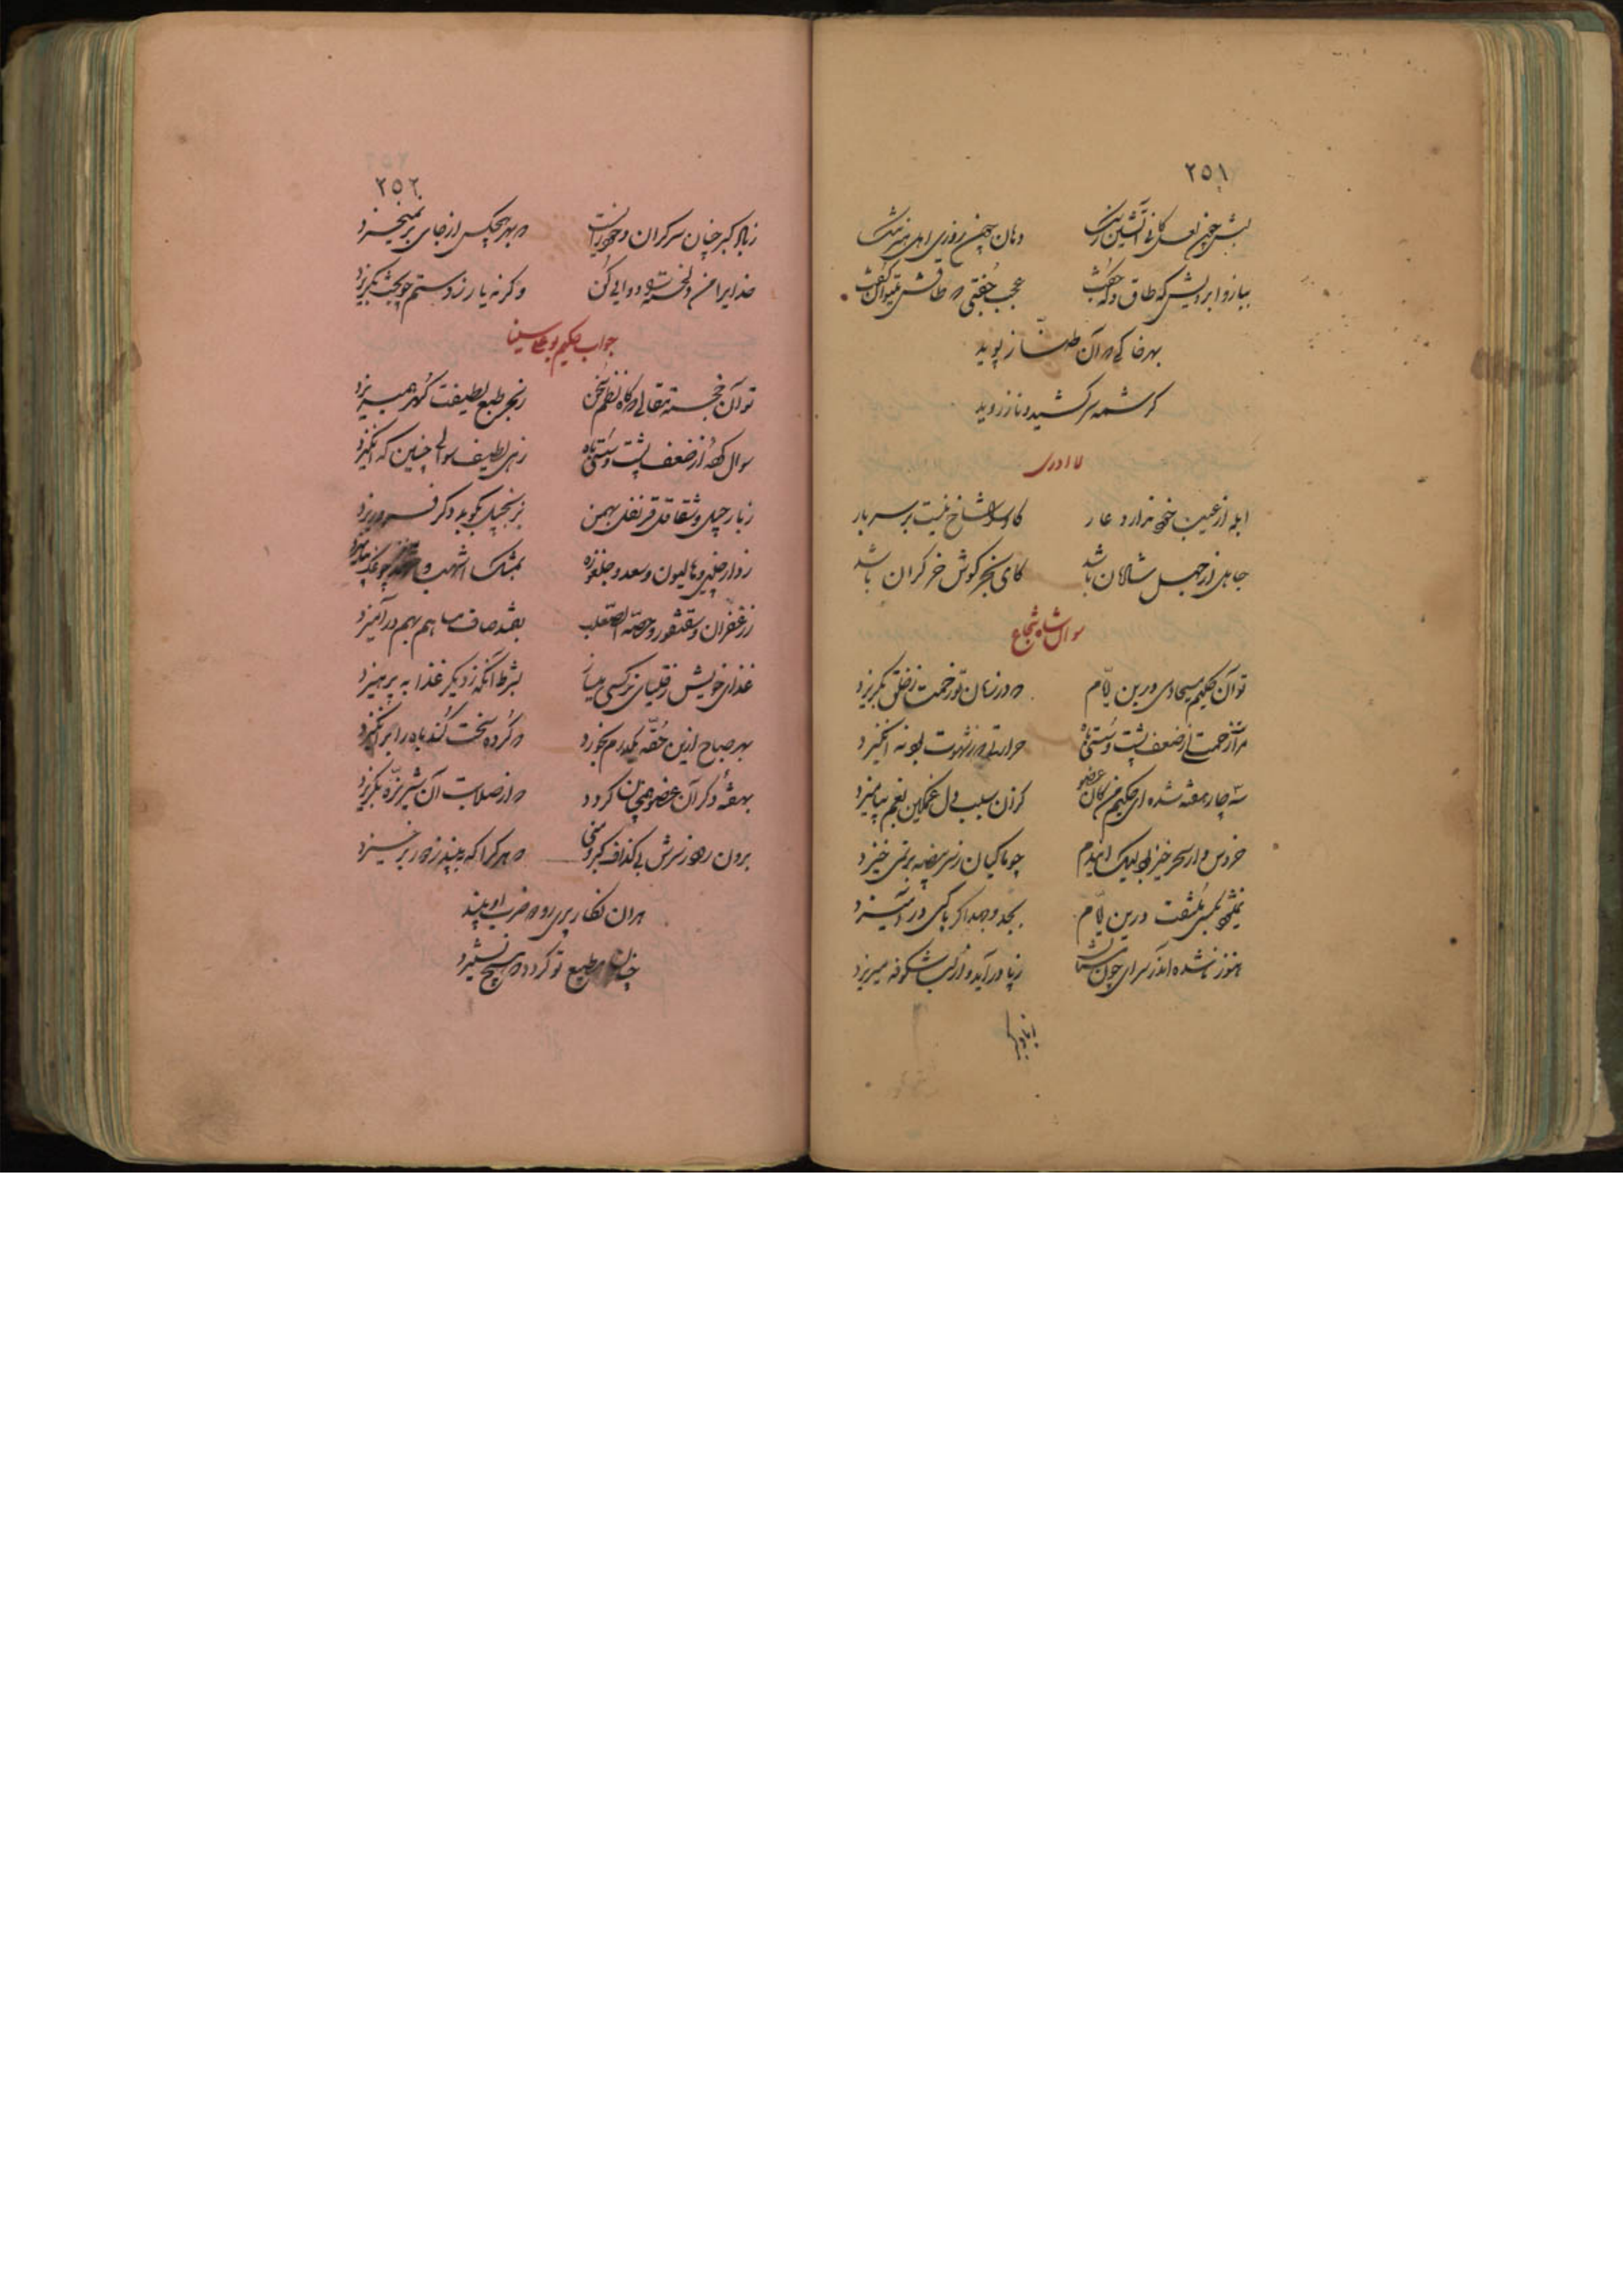 ۲۵۱
لبش چون لعل کانی آتشین رنگ دهان چون روزی اهل هنر تنگ
بنازو ابرویش که طاق و که جفت عجب جفتی که طاقش میتوان گفت
بهر خاکی که آن طناز پوید
کرشمه سر کشید و ناز روید
لا ادری
ابله از عیب خود ندارد عار کاو را شاخ نیست بر سر بار
جاهل از جهل شادمان باشد کای بنجر گوش خر گران باشد
سوال شاه شجاع
تو آن حکیم مسیحا دمی درین ایّام که در زمان تو زحمت ز خلق بگریزد
مرا ز زحمت از ضعف پشت و سستی باه حرارتی که ز شهوت بود نه انگیزد
سه چار هفته شده ای حکیم من کان عضو کزان سبب دل غمگین بغم بیامیزد
خروس وار سحر خیز بود لیک این دم چو ماکیان ز سر بیضه بر نمی خیزد
درین ایّام بجد و جهد اگر با کسی در آمیزد
هنوز ناشده اندر سرای چون مستان ز پا در آید و از لب شکوفه میریزد
۲۵۲
ز بالا کبر چنان سرگران و مخمور است که بهر هیچکس از جای بر نمیخیزد
خدایرا من دلخسته را دوایی کن وگرنه یار ز دستم چو بخت بگریزد
جواب حکیم بوعلی سینا
تو آن خجسته مقالی که گاه نظم سخن ز بحر طبع لطیفت گهر همیریزد
سوال کرده از ضعف پشت و سستی باه زهی لطیف سوالی چنین که انگیزد
ز نارجیل و شقاقل قرنفل بهمن بزنجبیل بکوبد دگر فرو ریزد
ز دارچینی و مالیون و سعد و جلغوزه بمشک اشهب و
ز زعفران و سقنقور و خصیة الثعلب بشهد صاف مساهم بهم در آمیزد
غذای خویش ز قلیای نرگسی میساز بشرط آنکه ز دیگر غذا به پرهیزد
بهر صباح ازین حقّه یکدرم بخورد که گرده سخت کند باه را بر انگیزد
بهفتهٔ دگر آن عضو همچنان گردد که از صلابت آن شیر نرّه بگریزد
برون رود ز سرش بی گذاف کبر و منی که هر کرا که به بیند ز دور بر خیزد
هر آن نگار پری رو که ضرب او بیند
چنان مطیع تو گردد که هیچ نستیزد